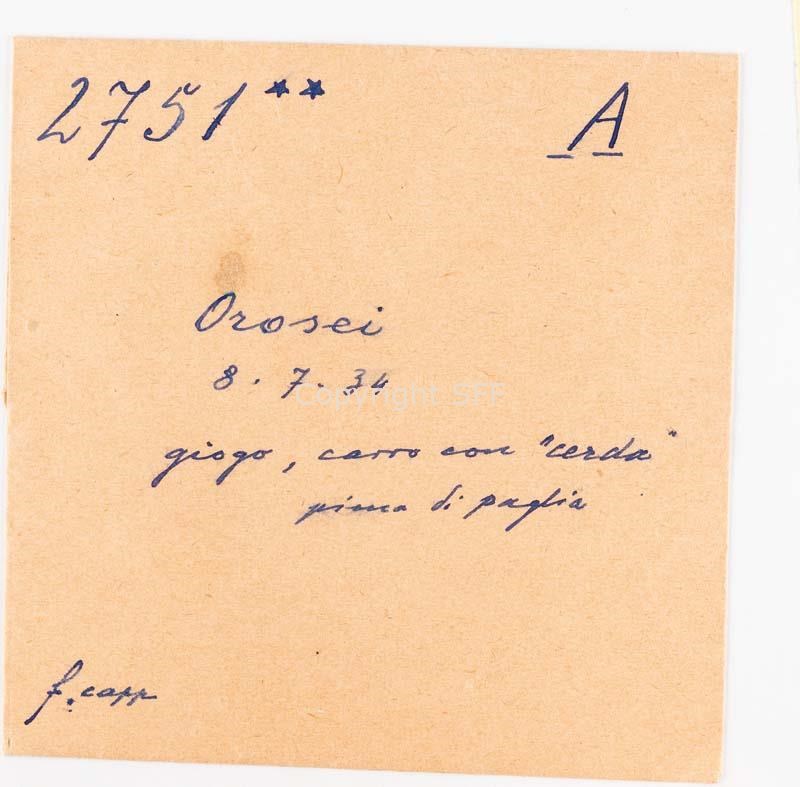 2751** A
Orosei
8.7.34
giogo, carro con "cerda"
piena di paglia
f. capp
Copyright SFF